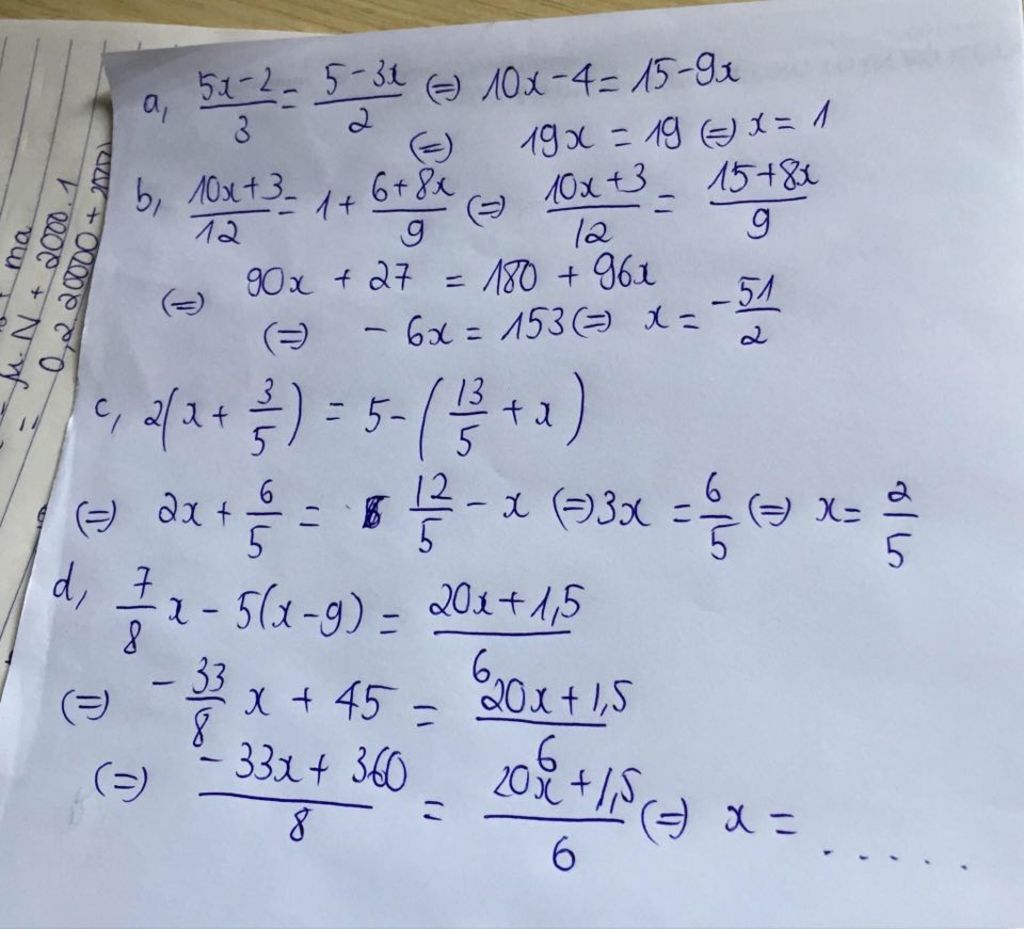 a, (5x-2)/3 = (5-3x)/2 (=) 10x-4 = 15-9x
(=) 19x = 19 (=) x = 1
b, (10x+3)/12 = 1 + (6+8x)/9 (=) (10x+3)/12 = (15+8x)/9
(=) 90x + 27 = 180 + 96x
(=) -6x = 153 (=) x = -51/2
c, 2(x + 3/5) = 5 - (13/5 + x)
(=) 2x + 6/5 = 12/5 - x (=) 3x = 6/5 (=) x = 2/5
d, 7/8 x - 5(x-9) = (20x+1,5)/6
(=) -33/8 x + 45 = (20x+1,5)/6
(=) (-33x+360)/8 = (20x+1,5)/6 (=) x = ......
ma
= μ.N + 2000.1